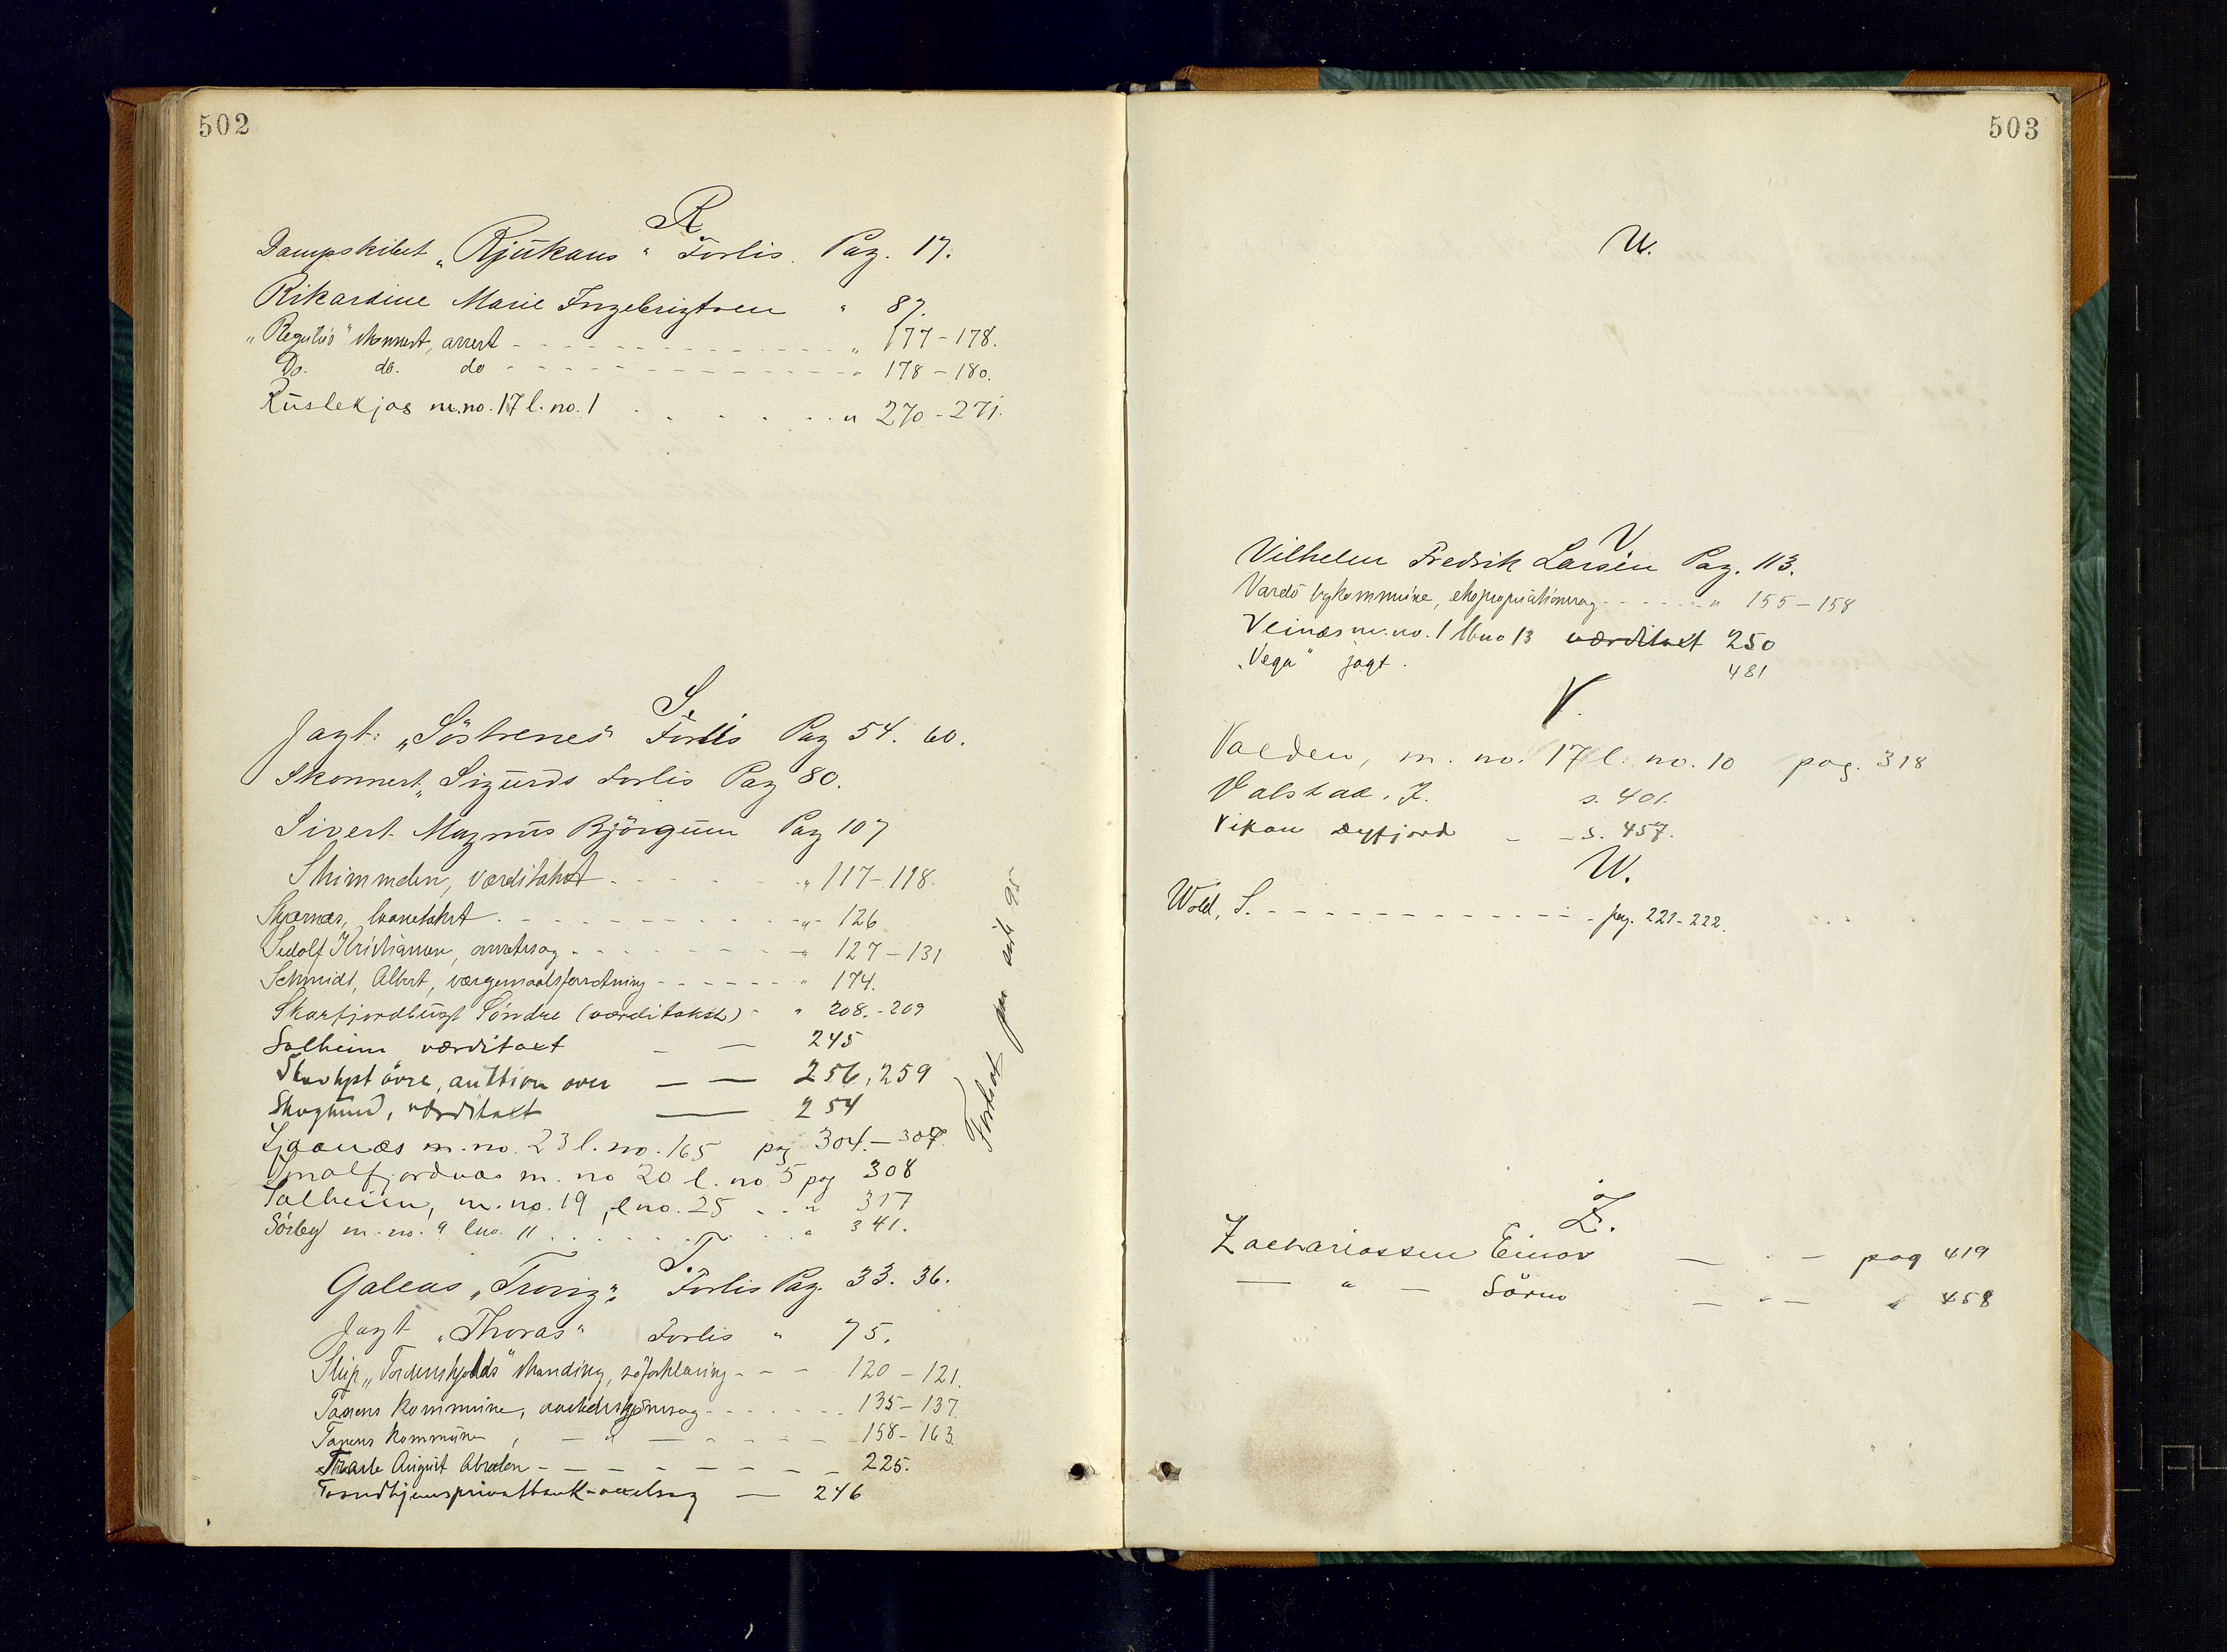 502
R.
Dampskibet „Rjukans" Forlis. Pag. 17.
Rikardine Marie Ingebrigtsen " 87.
„Regulus" skonnert, arrest - - - " 177-178.
Do. do. do - - - " 178-180.
Rüslekjos m.no. 17 l.no. 1 . . . . " 270-271.
S.
Jagt: „Söstrenes" Forlis Pag 54. 60.
Skonnert „Sigurds Forlis Pag 80.
Sivert Magnus Björgum Pag 107
Skimmelen, værditakst - - - " 117-118.
Skjernæs, laanetakst - - - " 126
Sedolf Kristiansen, arrestsag - - - " 127-131
Schmidt, Albert, værgemaalsforretning - - - " 174.
Skarfjordbugt Søndre (værditakst) - " 208.-209
Solheim værditaxt — — 245
övre, auktion over — — 256, 259
Skoglund, værditaxt — 254
m.no. 23 l.no. 165 pag 304.-307.
Smalfjordnæs m. no 20 l. no 5 pag 308
Solheim, m.no. 19, l no. 25 . . " 317
Sörby m. no. 9 lno. 11 . . . . " 341.
Fortsat
T.
Galeas „Tronig" Forlis Pag. 33. 36.
Jagt „Thoras" Forlis " 75.
Slup „Tordenskjolds" stranding, söforklaring - - - 120-121.
Tanens kommune, - - - 135-137.
Tanens kommune, — " — - - - 158-163.
August - - - 225.
Trondhjemsprivatbank - — 246
503
U.
V
Vilhelm Fredrik Larsen Pag. 113.
Vardö bykommune, ekspropriationssag - - - " 155-158
Veinæs m.no. 1 lbno 13 værditaxt 250
„Vega" jagt. 481
V.
Valden, m. no. 17 l. no. 10 pag. 318
Valstad. J. s. 401.
Vikan Dyfjord - - s. 457.
W.
Wold, S. - - - pag. 221-222.
Z.
Zachariassen Einar — . — pag 419
— " — Sören — " — " 458